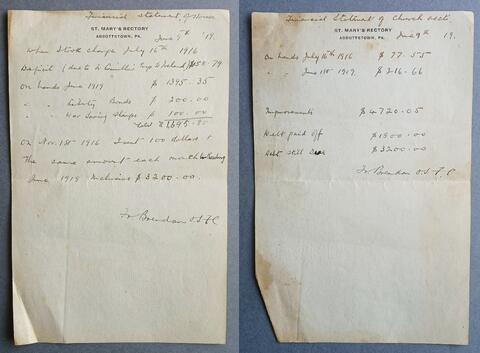 Financial Statement of House
ST. MARY'S RECTORY
ABBOTTSTOWN, PA.
June 9th 19.
When I took charge July 16th 1916
Deficit (due to Trip to Ireland) $158.79
On hands June 1919 $1395.35
" " Liberty Bonds $200.00
" " War Saving Stamps $100.00
total $1695.35
On Nov. 1st 1916 I sent 100 dollars &
The same amount each month
June 1919 Inclusive $3200.00.
Fr Brendan O.S.F.C
Financial Statement of Church acct.
ST. MARY'S RECTORY
ABBOTTSTOWN, PA.
June 9th 19.
On hands July 16th 1916 $77.55
" " June 1st 1919 $216.66
Improvements $4720.05
Debt paid off $1500.00
Debt still due $3200.00
Fr Brendan O.S.F.C